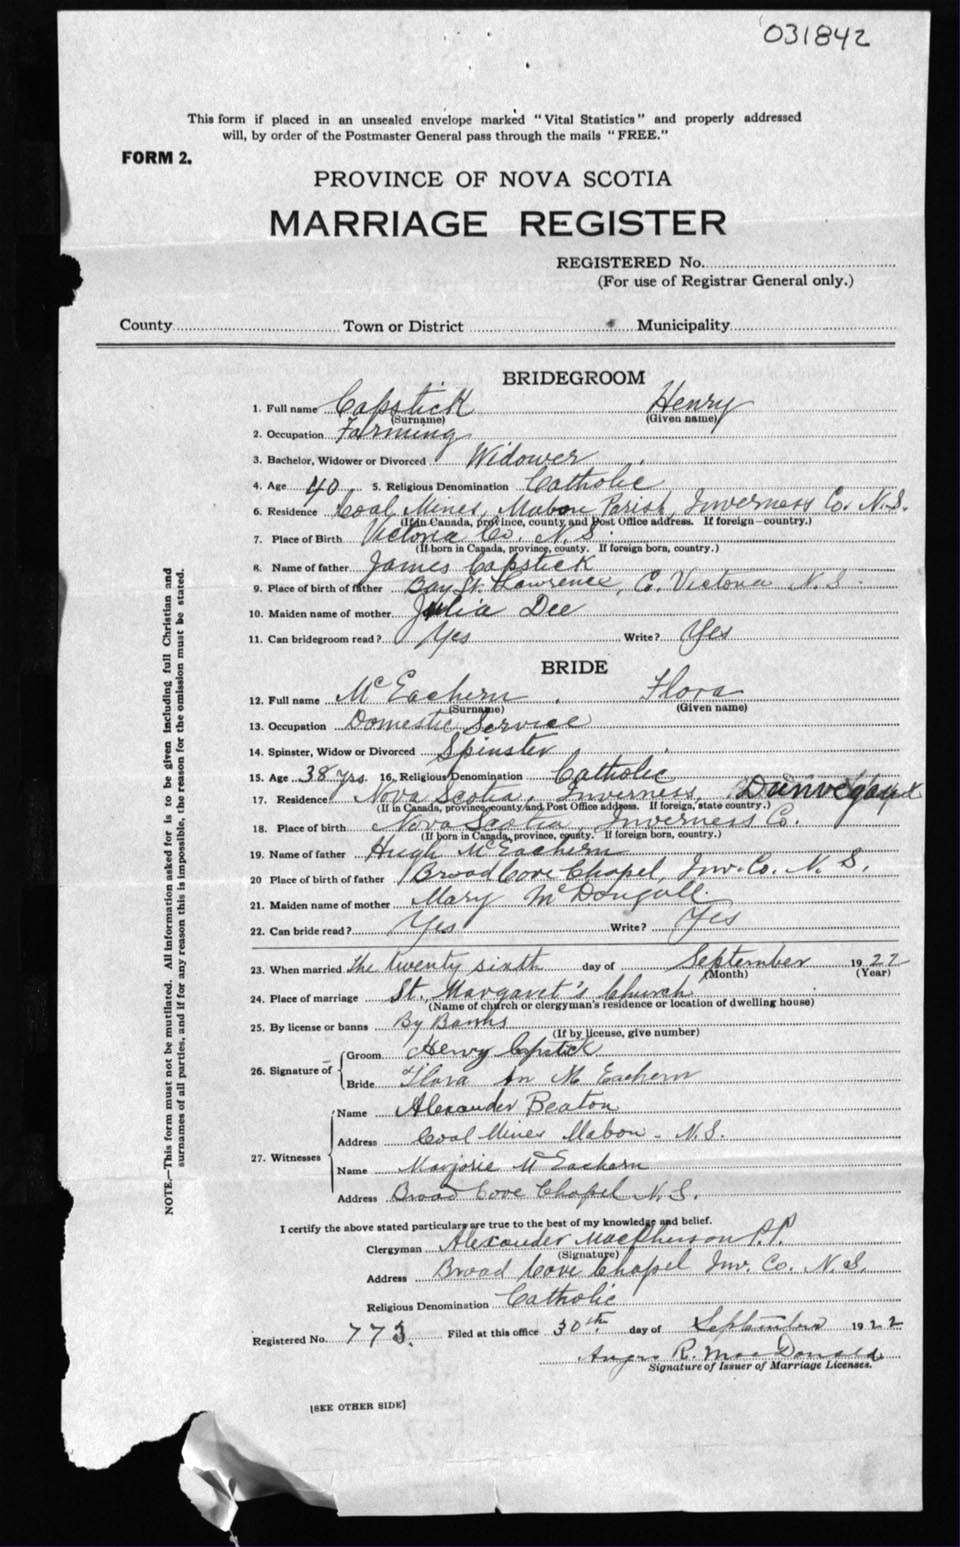 031842
This form if placed in an unsealed envelope marked "Vital Statistics" and properly addressed
will, by order of the Postmaster General pass through the mails "FREE."
FORM 2.
PROVINCE OF NOVA SCOTIA
MARRIAGE REGISTER
REGISTERED No.
(For use of Registrar General only.)
County Town or District Municipality
BRIDEGROOM
1. Full name Capstick Henry
(Surname) (Given name)
2. Occupation Farming
3. Bachelor, Widower or Divorced Widower
4. Age 40 5. Religious Denomination Catholic
6. Residence Coal Mines, Mabou Parish, Inverness Co. N.S.
(If in Canada, province, county and Post Office address. If foreign—country.)
7. Place of Birth Victoria Co. N.S.
(If born in Canada, province, county. If foreign born, country.)
8. Name of father James Capstick
9. Place of birth of father Bay St. Lawrence, C. Victoria N.S.
10. Maiden name of mother Julia Dee
11. Can bridegroom read? Yes Write? Yes
BRIDE
12. Full name McEachern, Flora
(Surname) (Given name)
13. Occupation Domestic Service
14. Spinster, Widow or Divorced Spinster
15. Age 38 yrs. 16. Religious Denomination Catholic
17. Residence Nova Scotia, Inverness,
(If in Canada, province, county and Post Office address. If foreign, state country.)
18. Place of birth Nova Scotia, Inverness Co.
(If born in Canada, province, county. If foreign born, country.)
19. Name of father Hugh McEachern
20 Place of birth of father Broad Cove Chapel, Inv. Co. N. S.
21. Maiden name of mother Mary McDougall.
22. Can bride read? Yes Write? Yes
23. When married The twenty sixth day of September 1922
(Month) (Year)
24. Place of marriage St. Margaret's Church
(Name of church or clergyman's residence or location of dwelling house)
25. By license or banns By Banns
(If by license, give number)
26. Signature of
Groom Henry Capstick
Bride Flora An McEachern
27. Witnesses
Name Alexander Beaton
Address Coal Mines Mabou - N.S.
Name Marjorie McEachern
Address Broad Cove Chapel N.S.
I certify the above stated particulars are true to the best of my knowledge and belief.
Clergyman Alexander MacPherson P.P.
(Signature)
Address Broad Cove Chapel Inv. Co. N.S.
Religious Denomination Catholic
Registered No. 773. Filed at this office 30th day of September 1922
Angus R. MacDonald
Signature of Issuer of Marriage Licenses.
[SEE OTHER SIDE]
NOTE.—This form must not be mutilated. All information asked for is to be given including full Christian and
surnames of all parties, and if for any reason this is impossible, the reason for the omission must be stated.